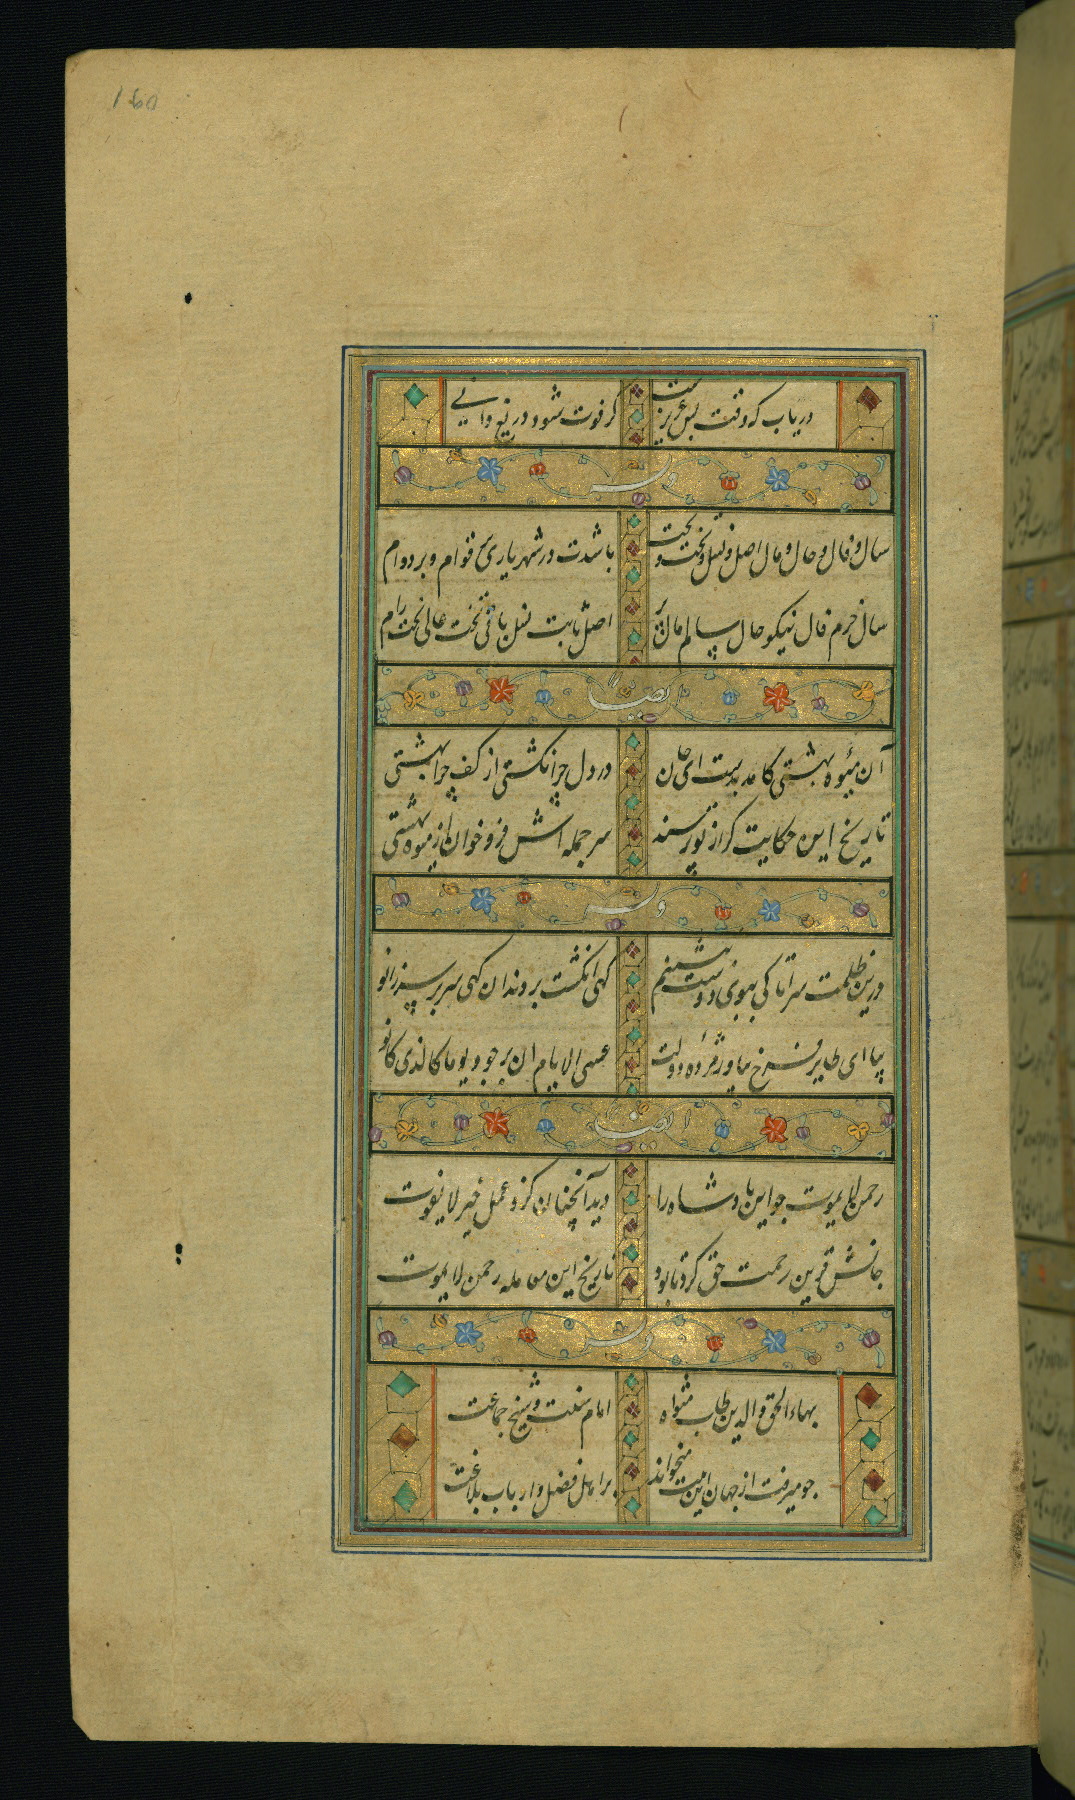 160
دریاب که وقت بس عزیزست
گر فوت شود دریغ وایی
وله
سال و فال و حال و مال اصل و نسل و تخت و بخت
باشدت در شهریاری برقوام و بردوام
سال خرم فال نیکو حال سالم مال پر
اصل ثابت نسل باقی تخت عالی بخت رام
ایضا
آن میوه بهشتی کامد بدست ای جان
در دل چرا نکشتی از کف چرا بهشتی
تاریخ این حکایت گر از تو بپرسند
سرجمله اش فرو خوان از میوه بهشتی
وله
درین ظلمت سرا تا کی ببوی دوست بنشینم
کهی انکشت بر دندان کهی سر بر سر زانو
بیا ای طایر فرخ بیاور مژده دولت
عسی الایام ان یرجعن یوما کالذی کانو
ایضا
رحمن لایموت چو این پادشاه را
دید آنچنان کزو عمل خیر لایفوت
جانش قرین رحمت حق کرد تا بود
تاریخ این معامله رحمن لایموت
وله
بهاءالحق و الدین طاب مثواه
امام سنت و شیخ جماعت
چو میرفت از جهان این بیت میخواند
بر اهل فضل و ارباب بلاغت